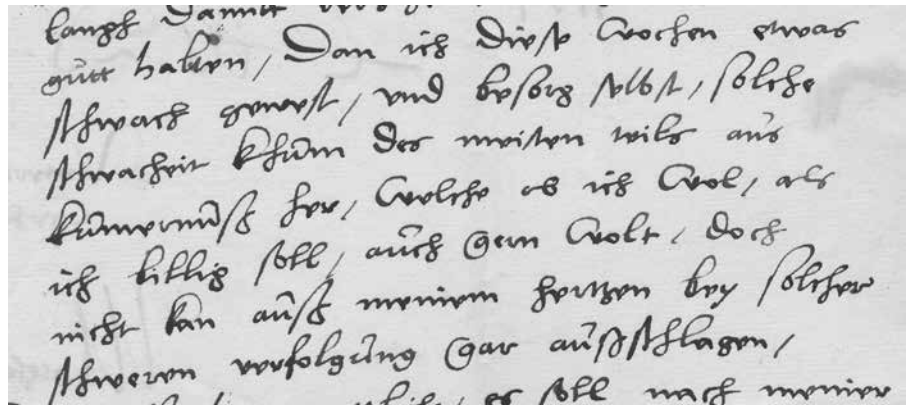 langk damitt
gütt halten, Dan ich diese Wochen etwas
schwach gewest, vnd besorg selbst, solche
schwacheit khüm des meisten teils aüs
kümernüß her, Welche ob ich Wol, als
ich billig soll, aüch gern Wolt, doch
nicht kan aüß meinem hertzen bey solcher
schweren verfolgüng gar aüßschlagen,
es soll nach meiner